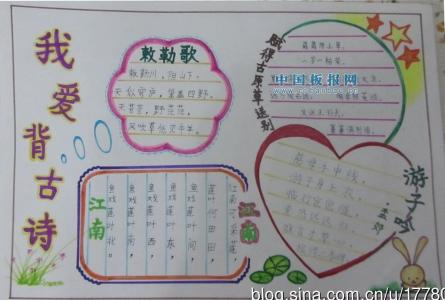 我爱背古诗
敕勒歌
敕勒川，阴山下，
天似穹庐，笼盖四野。
天苍苍，野茫茫，
风吹草低见牛羊。
赋得古原草送别
离离原上草，
一岁一枯荣。
中国板报网
萋萋满别情。
江南
江南可采莲，
莲叶何田田，
鱼戏莲叶间，
鱼戏莲叶东，
鱼戏莲叶西，
鱼戏莲叶南，
鱼戏莲叶北。
江南
游子吟
孟郊
慈母手中线，
游子身上衣。
临行密密缝，
意恐迟迟归。
blog.sina.com.cn/u/17780